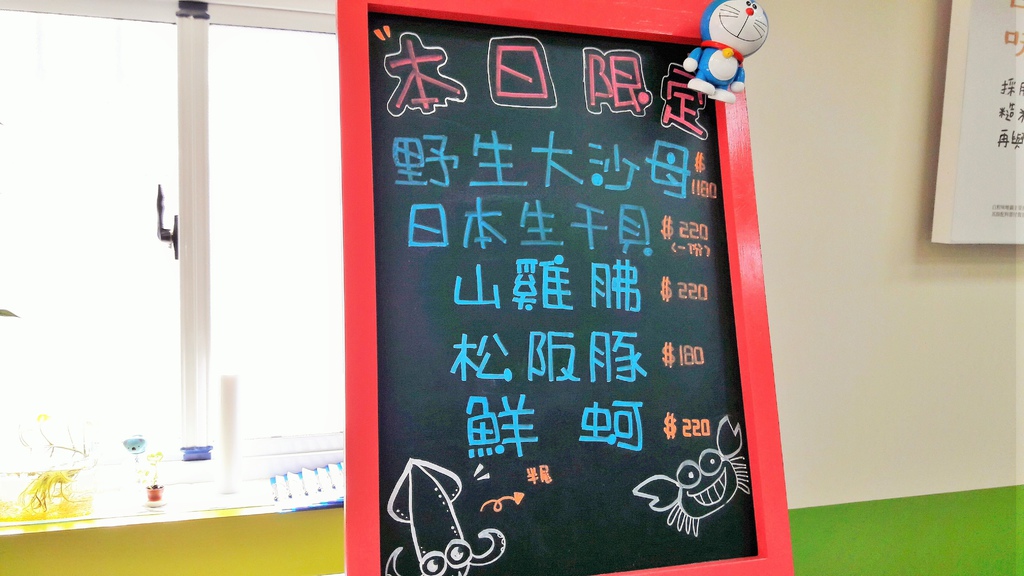 本日限定
野生大沙母 $1180
日本生干貝 $220
(一份)
山雞胇 $220
松阪豚 $180
鮮蚵 $220
半尾
採用
糙米
再與